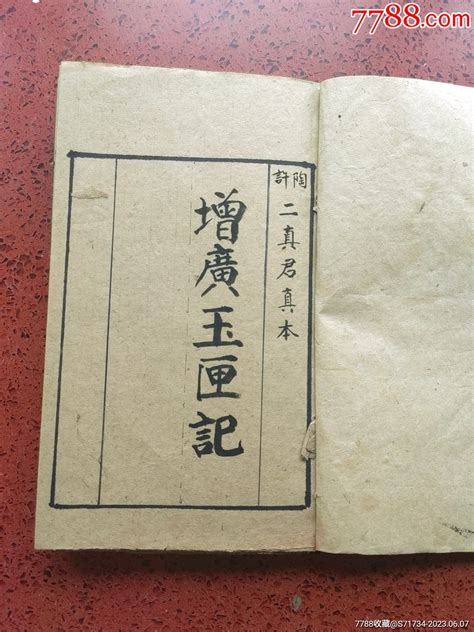 7788.com
許陶
二真君真本
增廣玉匣記
7788收藏@S71734-2023.06.07